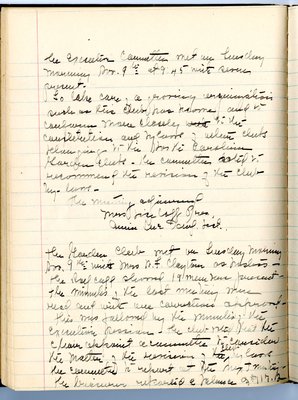 The Executive Committee met on Tuesday
morning Nov. 9th at 9.45 with seven
present.
To take care of a growing organization
such as this Club has become, and to
conform more closely to the
constitution and by laws of other clubs
belonging to the North Carolina
Garden Clubs. The committee voted to
recommend the revision of the Club
by-laws.
The meeting adjourned
Pres.
The Garden Club met on Tuesday morning
Nov. 9th with Mrs. Clayton as hostess.
The Roll Call showed 19 members present.
The minutes of the last meeting were
read and with one correction approved.
This was followed by the minutes of the
Executive session. The club voted that the
chair appoint a committee to consider
the matter of the revision of the by laws
the committee to report at the meeting.
The treasurer reported a balance of